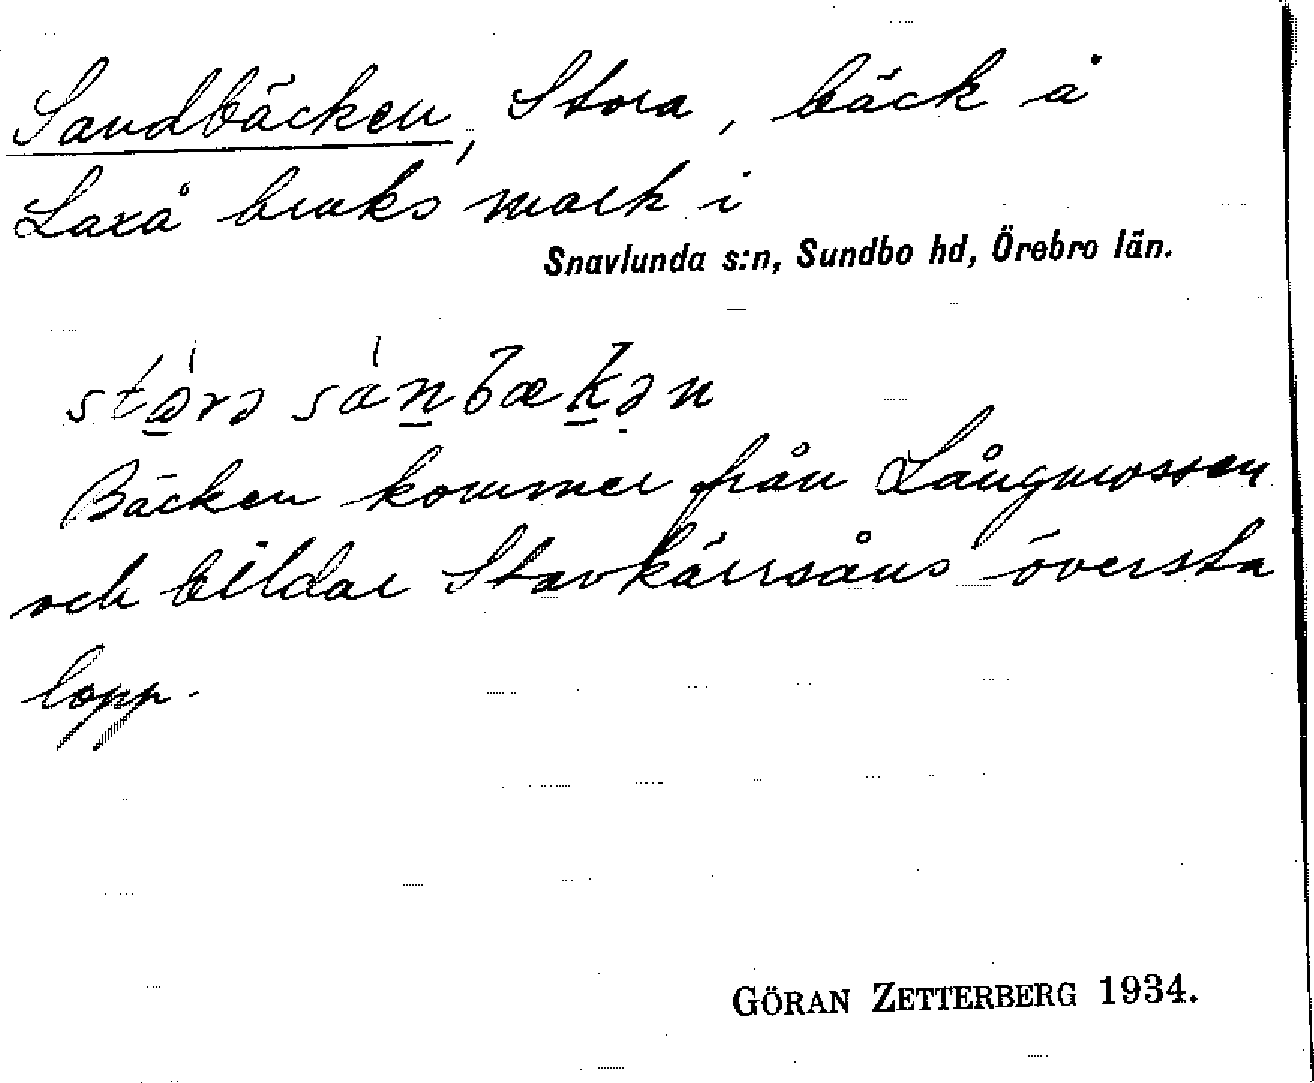 Sandbäcken, Stora, bäck å
Laxå bruks mark i
Snavlunda s:n, Sundbo hd, Örebro län.
stórə sánbækən
Bäcken kommer från Långmossen
och bildar Stavkärrsåns översta
lopp.
GÖRAN ZETTERBERG 1934.